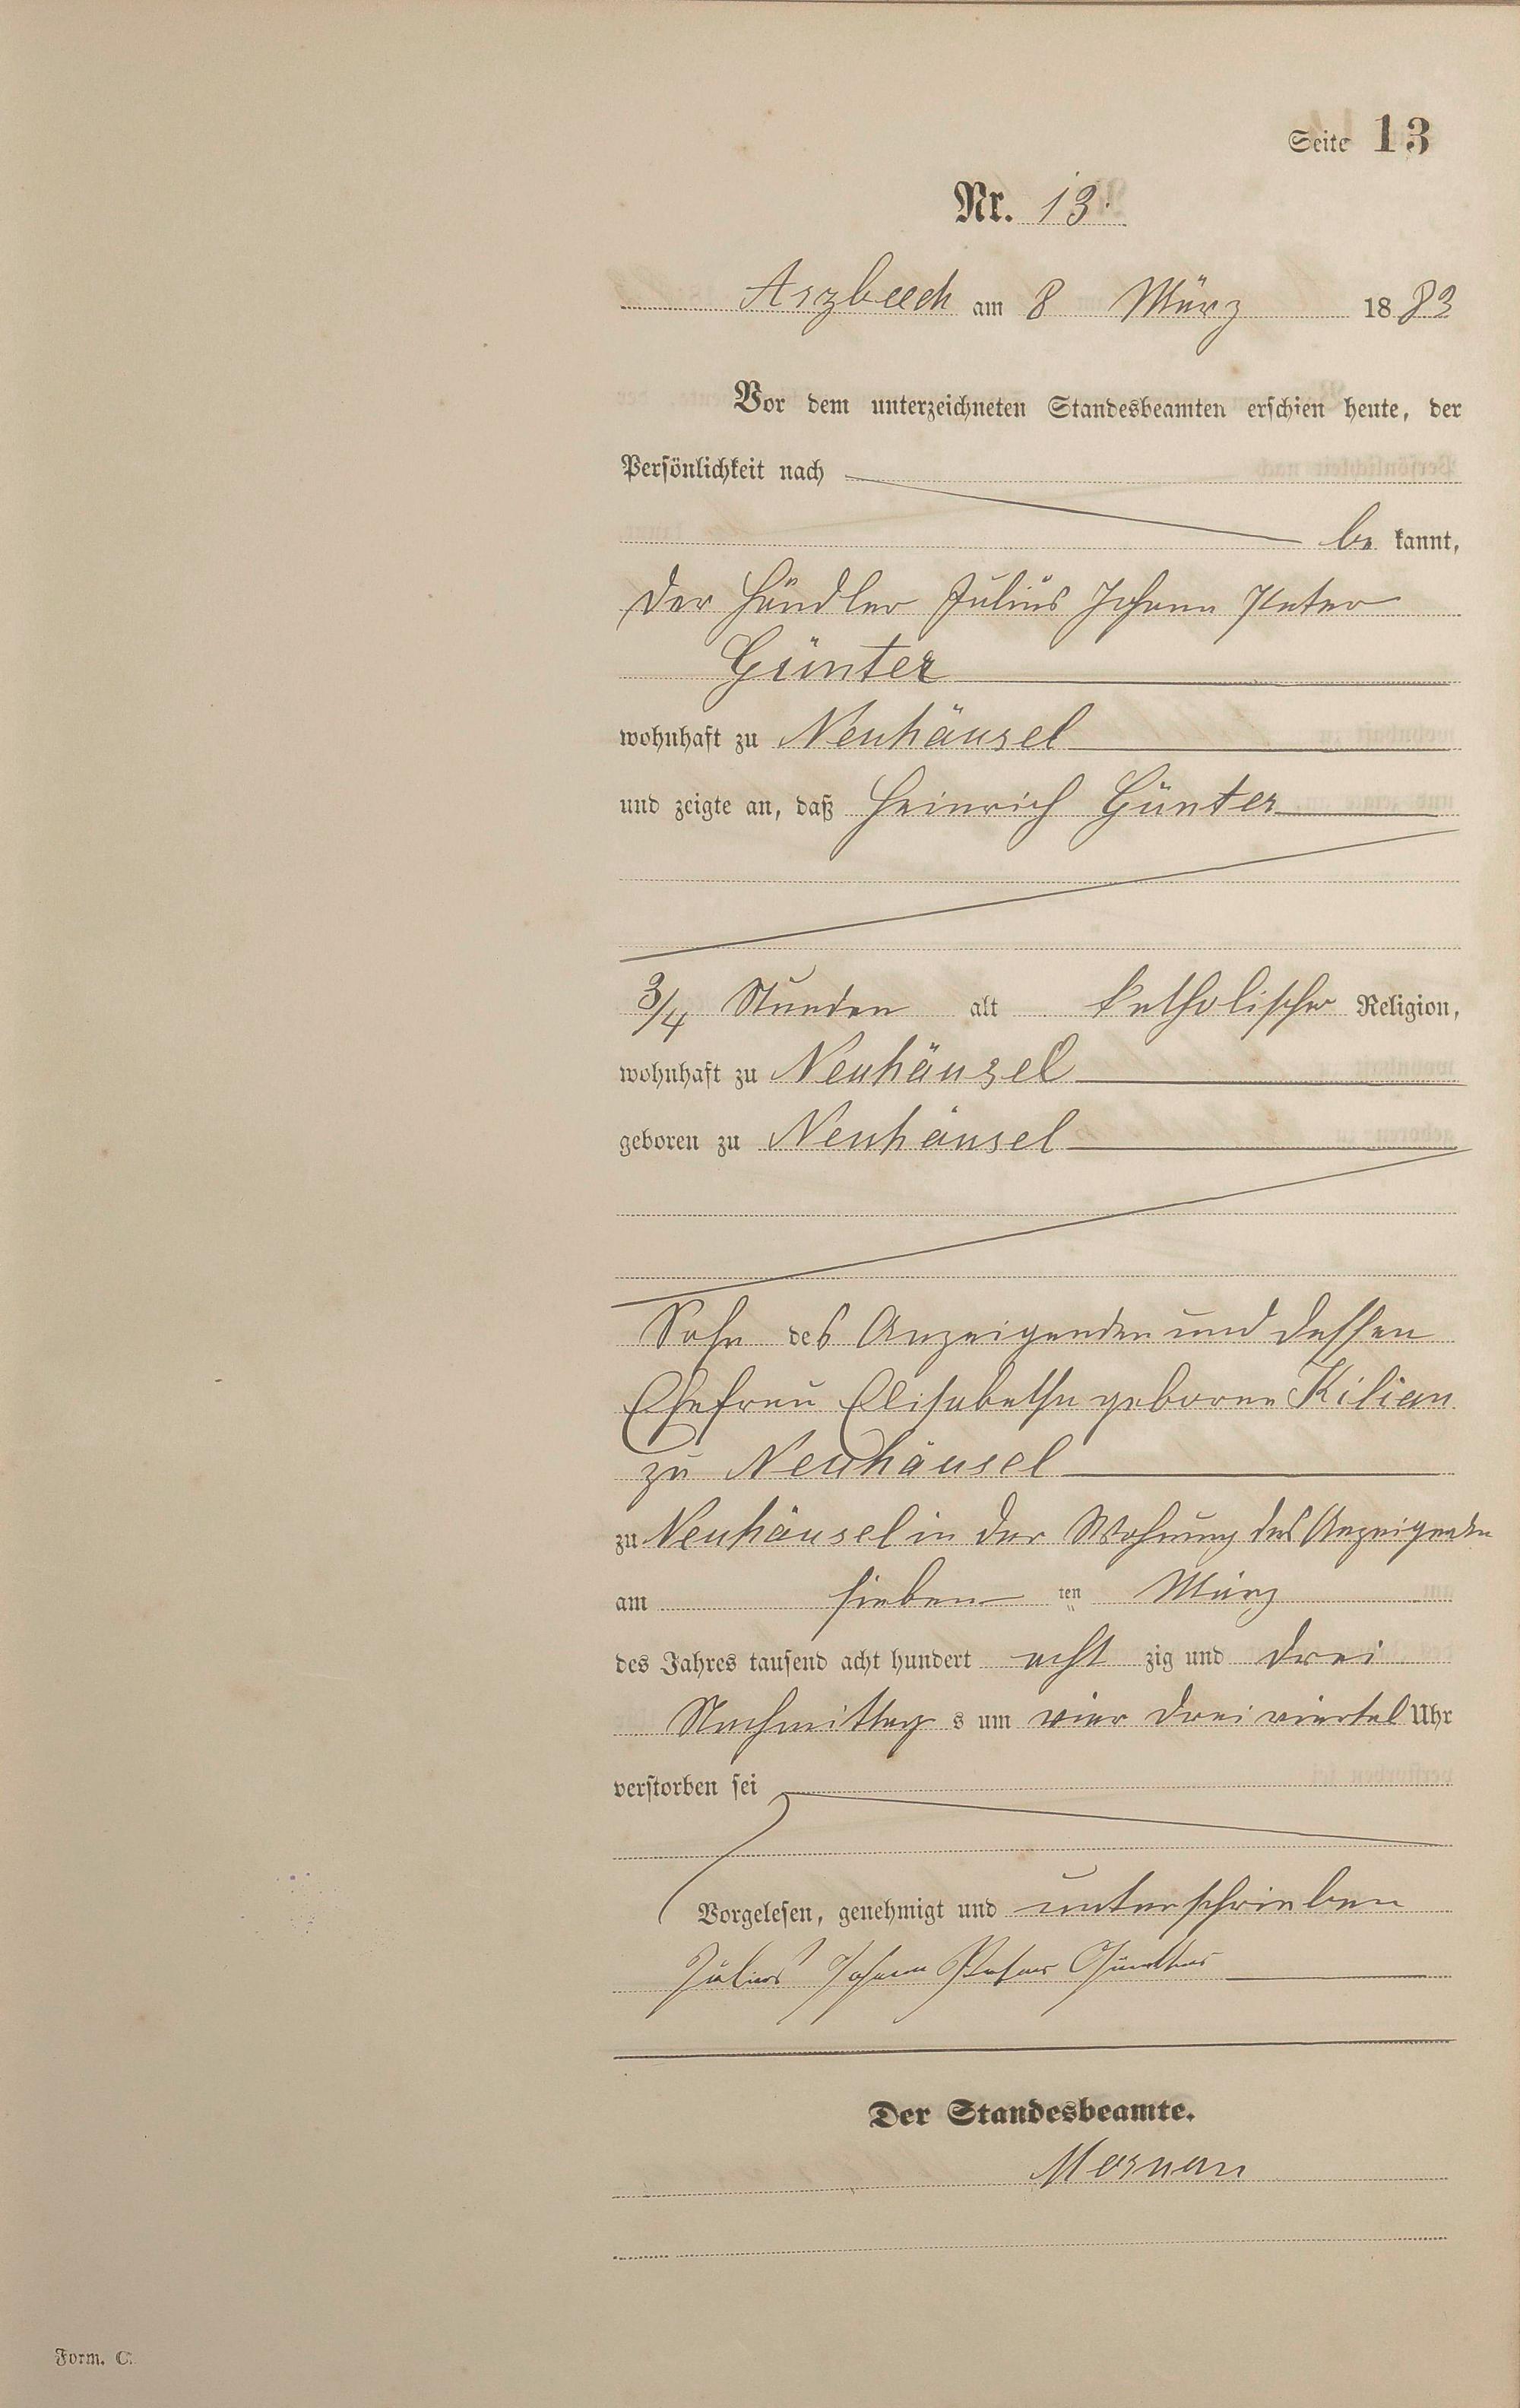 Seite 13
Nr. 13.
Arzbach am 8 März 1883
Vor dem unterzeichneten Standesbeamten erschien heute, der
Persönlichkeit nach
be kannt,
der Händler Julius Johann Peter
Günter
wohnhaft zu Neuhäusel
und zeigte an, daß Heinrich Günter
3/4 Stunden alt katholischer Religion,
wohnhaft zu Neuhäusel
geboren zu Neuhäusel
Sohn des Anzeigenden und dessen
Ehefrau Elisabetha geborne Kilian
zu Neuhäusel
zu Neuhäusel in der Wohnung des Anzeigenden
am sieben ten März
des Jahres tausend acht hundert acht zig und drei
Nachmittag s um vier dreiviertel Uhr
verstorben sei
Vorgelesen, genehmigt und unterschrieben
Julius Johann Peter Günther
Der Standesbeamte.
Form. C.